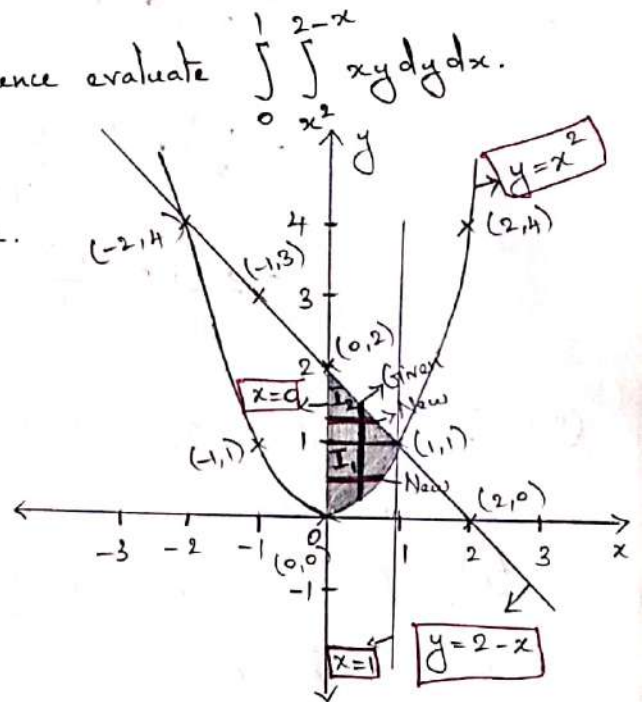 ence evaluate ∫₀¹ ∫ₓ²^(2-x) xy dy dx.
y
y=x²
4
(2,4)
(-2,4)
(-1,3)
3
2
(0,2)
Given
x=0
I₂
New
(-1,1)
1
I₁
(1,1)
New
(2,0)
-3 -2 -1 0 1 2 3 x
(0,0)
-1
x=1
y=2-x